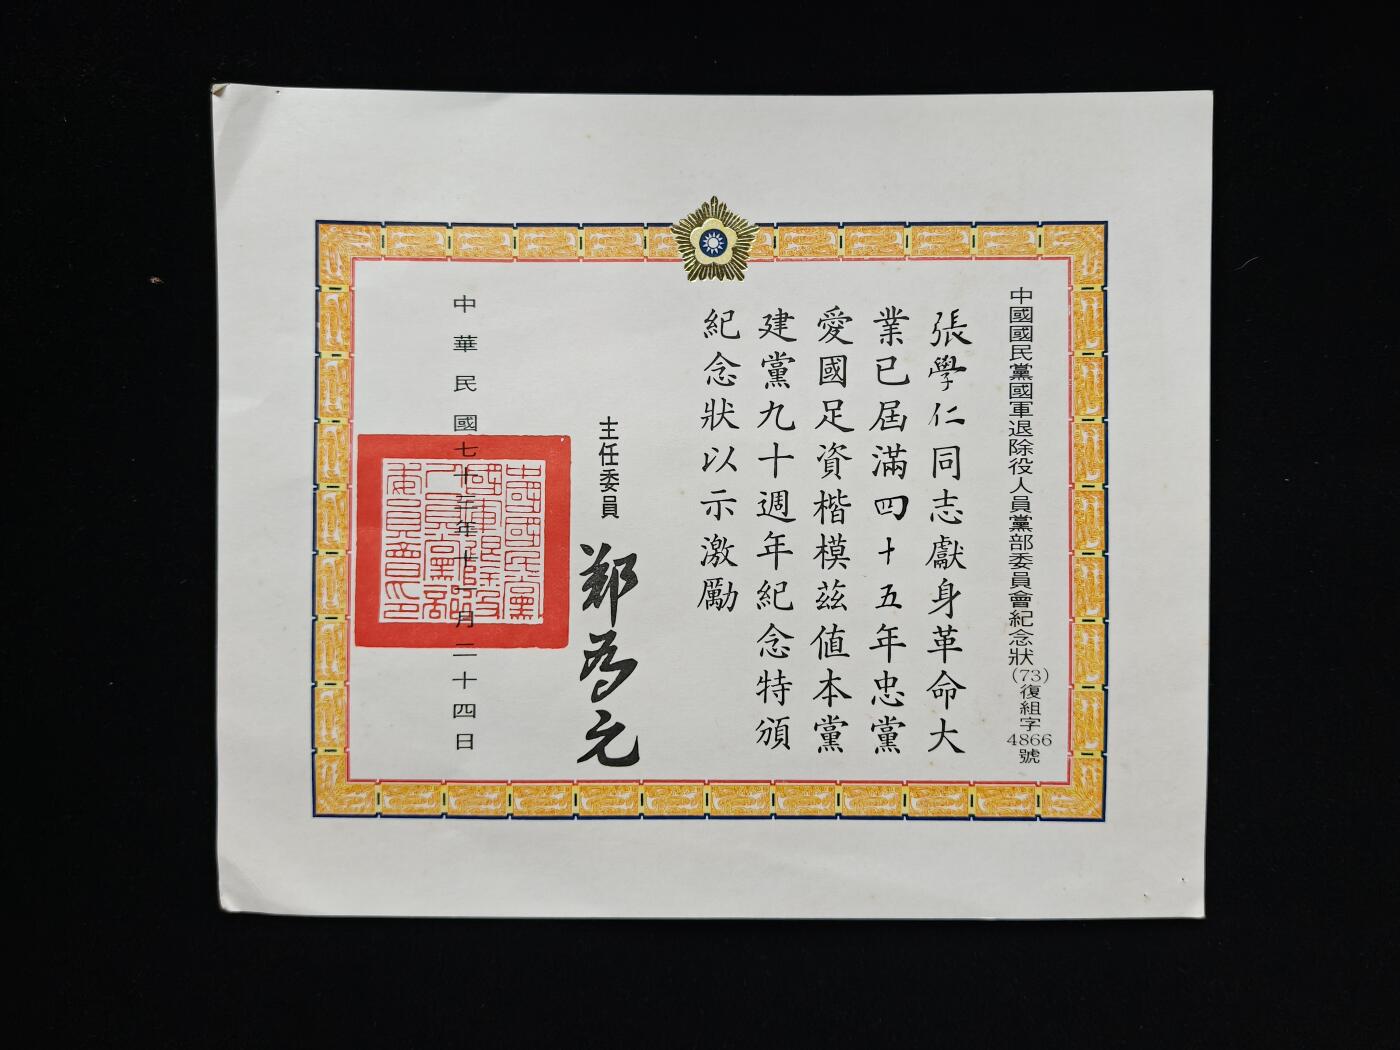 中國國民黨國軍退除役人員黨部委員會紀念狀(73)復組字4866號
張學仁同志獻身革命大
業已屆滿四十五年忠黨
愛國足資楷模茲值本黨
建黨九十週年紀念特頒
紀念狀以示激勵
主任委員 鄭為元
中華民國七十三年十一月二十四日
中國國民黨
國軍退除役
人員黨部
委員會印